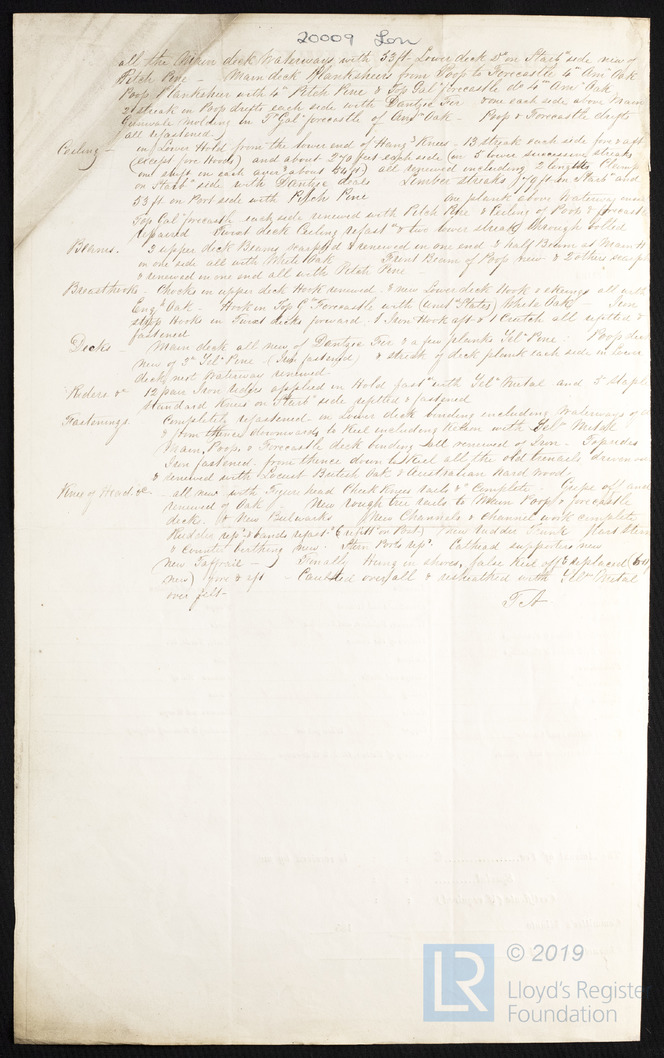 20009 Lon
all the Main deck Waterways with 53 ft Lower deck Do on Starbd side new of
Pitch Pine - Main deck Planksheers from Poop to Forecastle 4in Amn Oak
Poop Planksheer with 4in Pitch Pine & Top Gal forecastle do 4in Amn Oak
2 streak in Poop drifts each side with Dantzic Fir & one each side above Main
Gunwale molding in T Gal forecastle of Amn Oak - Poop & Forecastle drifts
all refastened.
Ceiling - in Lower Hold from the lower end of Hang Knees - 13 streak each side fore & aft
(except fore Hoods) and about 270 feet each side (in 5 lower successive streaks
one shift in each about 54 ft) all renewed including 2 lengths Clamp
on Starbd side with Dantzic deals Limber streaks 79 ft on Starbd and
53 ft on Port side with Pitch Pine one plank above Waterway
Top Gal forecastle each side renewed with Pitch Pine & Ceiling of Poop & forecastle
repaired deck Ceiling refastd & two lower streaks through bolted
Beams. 2 upper deck Beams scarphed & renewed on one end & half Beam at Main H
on one side all with White Oak Front Beam of Poop new & 2 others scarph
& renewed in one end all with Pitch Pine -
Breasthooks - Chocks in upper deck Hook renewed & new Lower deck Hook & ekeings all with
Engh Oak - Hook in Top G Forecastle with (and Plates) White Oak - Iron
Hooks in decks forward - 1 Iron Hook aft & 1 Crutch all refitted &
fastened
Decks - Main deck all new of Dantzic Fir & a few planks Yel Pine: Poop deck
new of 3in Yel Pine (Iron fastened) & streak of deck plank each side in lower
deck next Waterway renewed -
Riders &c 12 pair Iron riders applied in Hold fastd with Yel Metal and 5 Staple
Standard Knees on Starbd side refitted & fastened
Fastenings Completely refastened in Lower deck binding including Waterways
& from thence downwards to Keel including Kelson with Yelw Metal
Main, Poop & Forecastle deck binding all renewed of Iron - Topsides
Iron fastened from thence down to Keel all the old trenails driven out
& renewed with Locust British Oak & Australian Hard wood,
Knee of Head &c - all new with Figure head Cheek Knees rails &c Complete. Gripe off and
renewed of Oak. New rough tree rails to Main Poop & forecastle
deck. & New Bulwarks New Channels & Channel work complete,
Rudder repd & bands refastd New rudder Trunk Flat Stern
& Counter berthing new. Stern Ports repd. Cathead supporters new
New Taffrail -) Finally Hung in shores, false Keel off & replaced
new) fore & aft - Caulked over all & resheathed with Yelw Metal
over felt -
T A
© 2019
LR
Lloyd's Register
Foundation